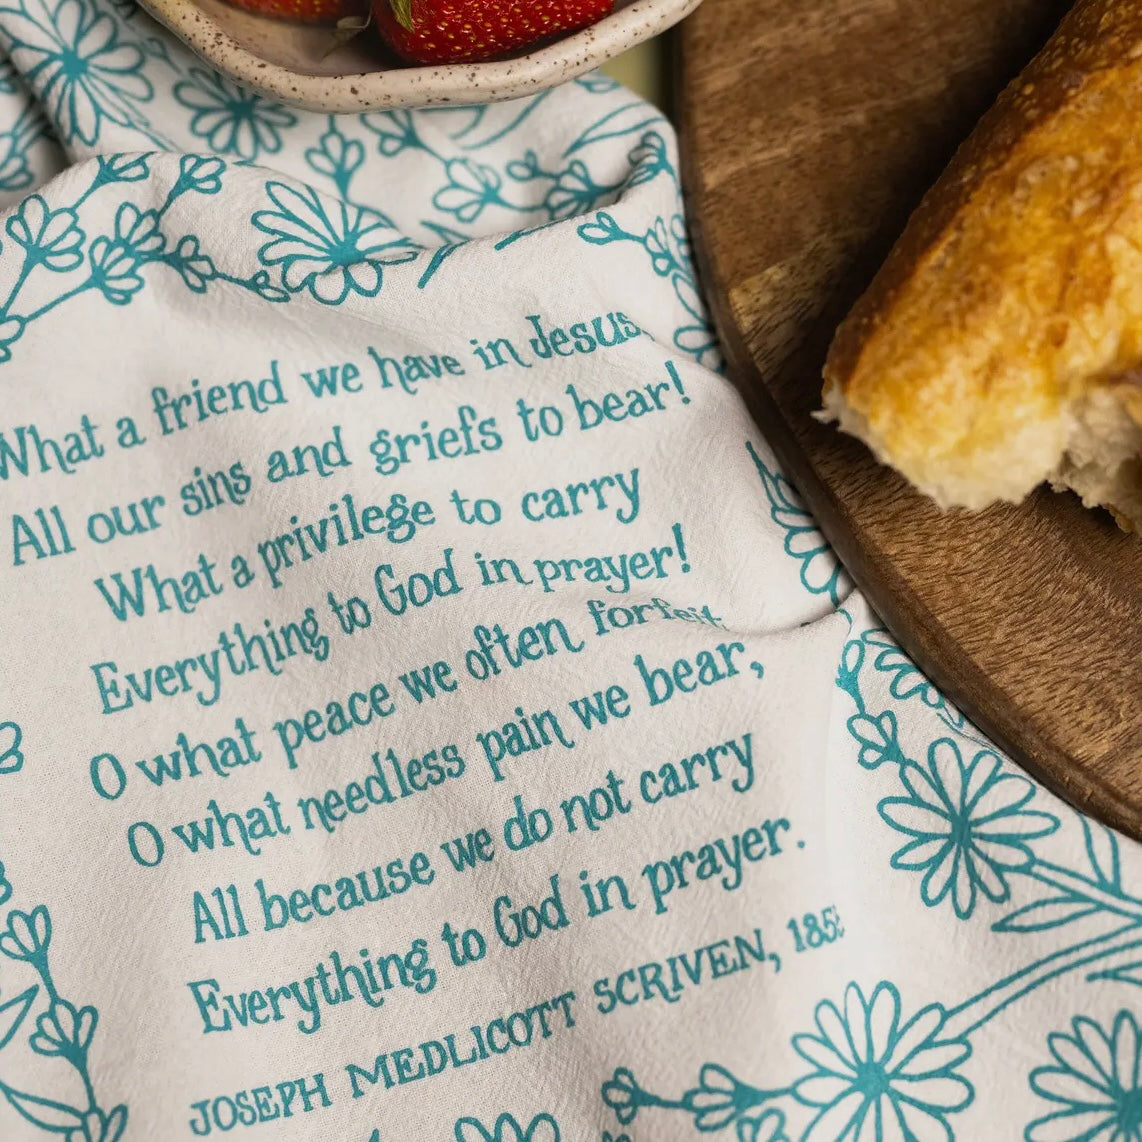 What a friend we have in Jesus,
All our sins and griefs to bear!
What a privilege to carry
Everything to God in prayer!
O what peace we often forfeit
O what needless pain we bear,
All because we do not carry
Everything to God in prayer.
JOSEPH MEDLICOTT SCRIVEN,